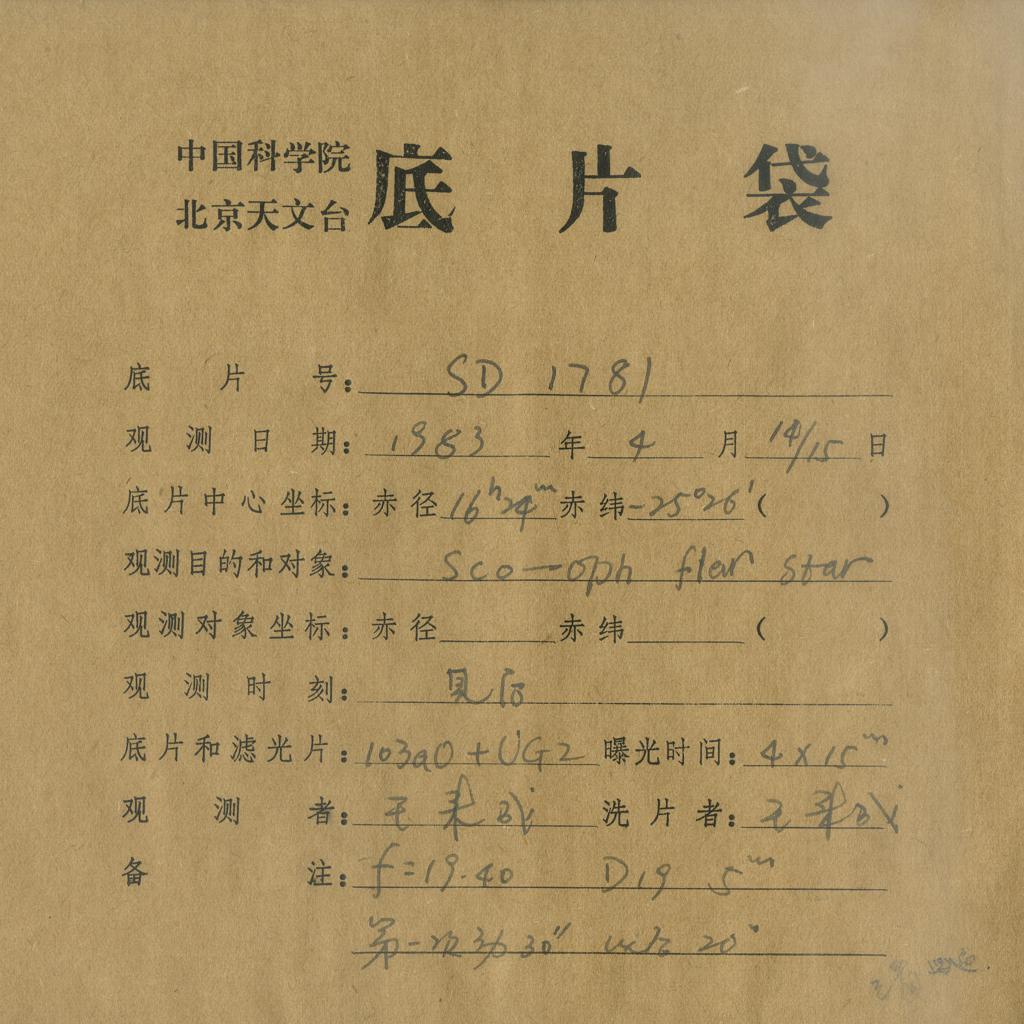 中国科学院
北京天文台
底片袋
底片号： SD 1781
观测日期： 1983 年 4 月 14/15 日
底片中心坐标：赤径 16ʰ24ᵐ 赤纬 -25°26′ (  )
观测目的和对象： Sco—oph flar star
观测对象坐标：赤径 赤纬 (  )
观测时刻： 见后
底片和滤光片： 103aO + UG2 曝光时间： 4×15ᵐ
观测者： 王 洗片者： 王
备注： f=19.40 D19 5ᵐ
第一次动30″ 以后 20″